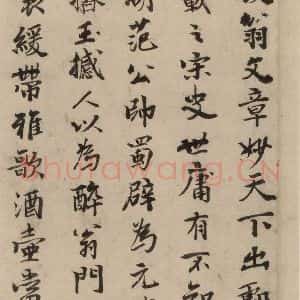 翁文章妙天下出
之宗 世庸有不
范公帥蜀辟為元
玉撼人以為醉翁門
裘緩帶雅歌酒壺
shufawang.CN